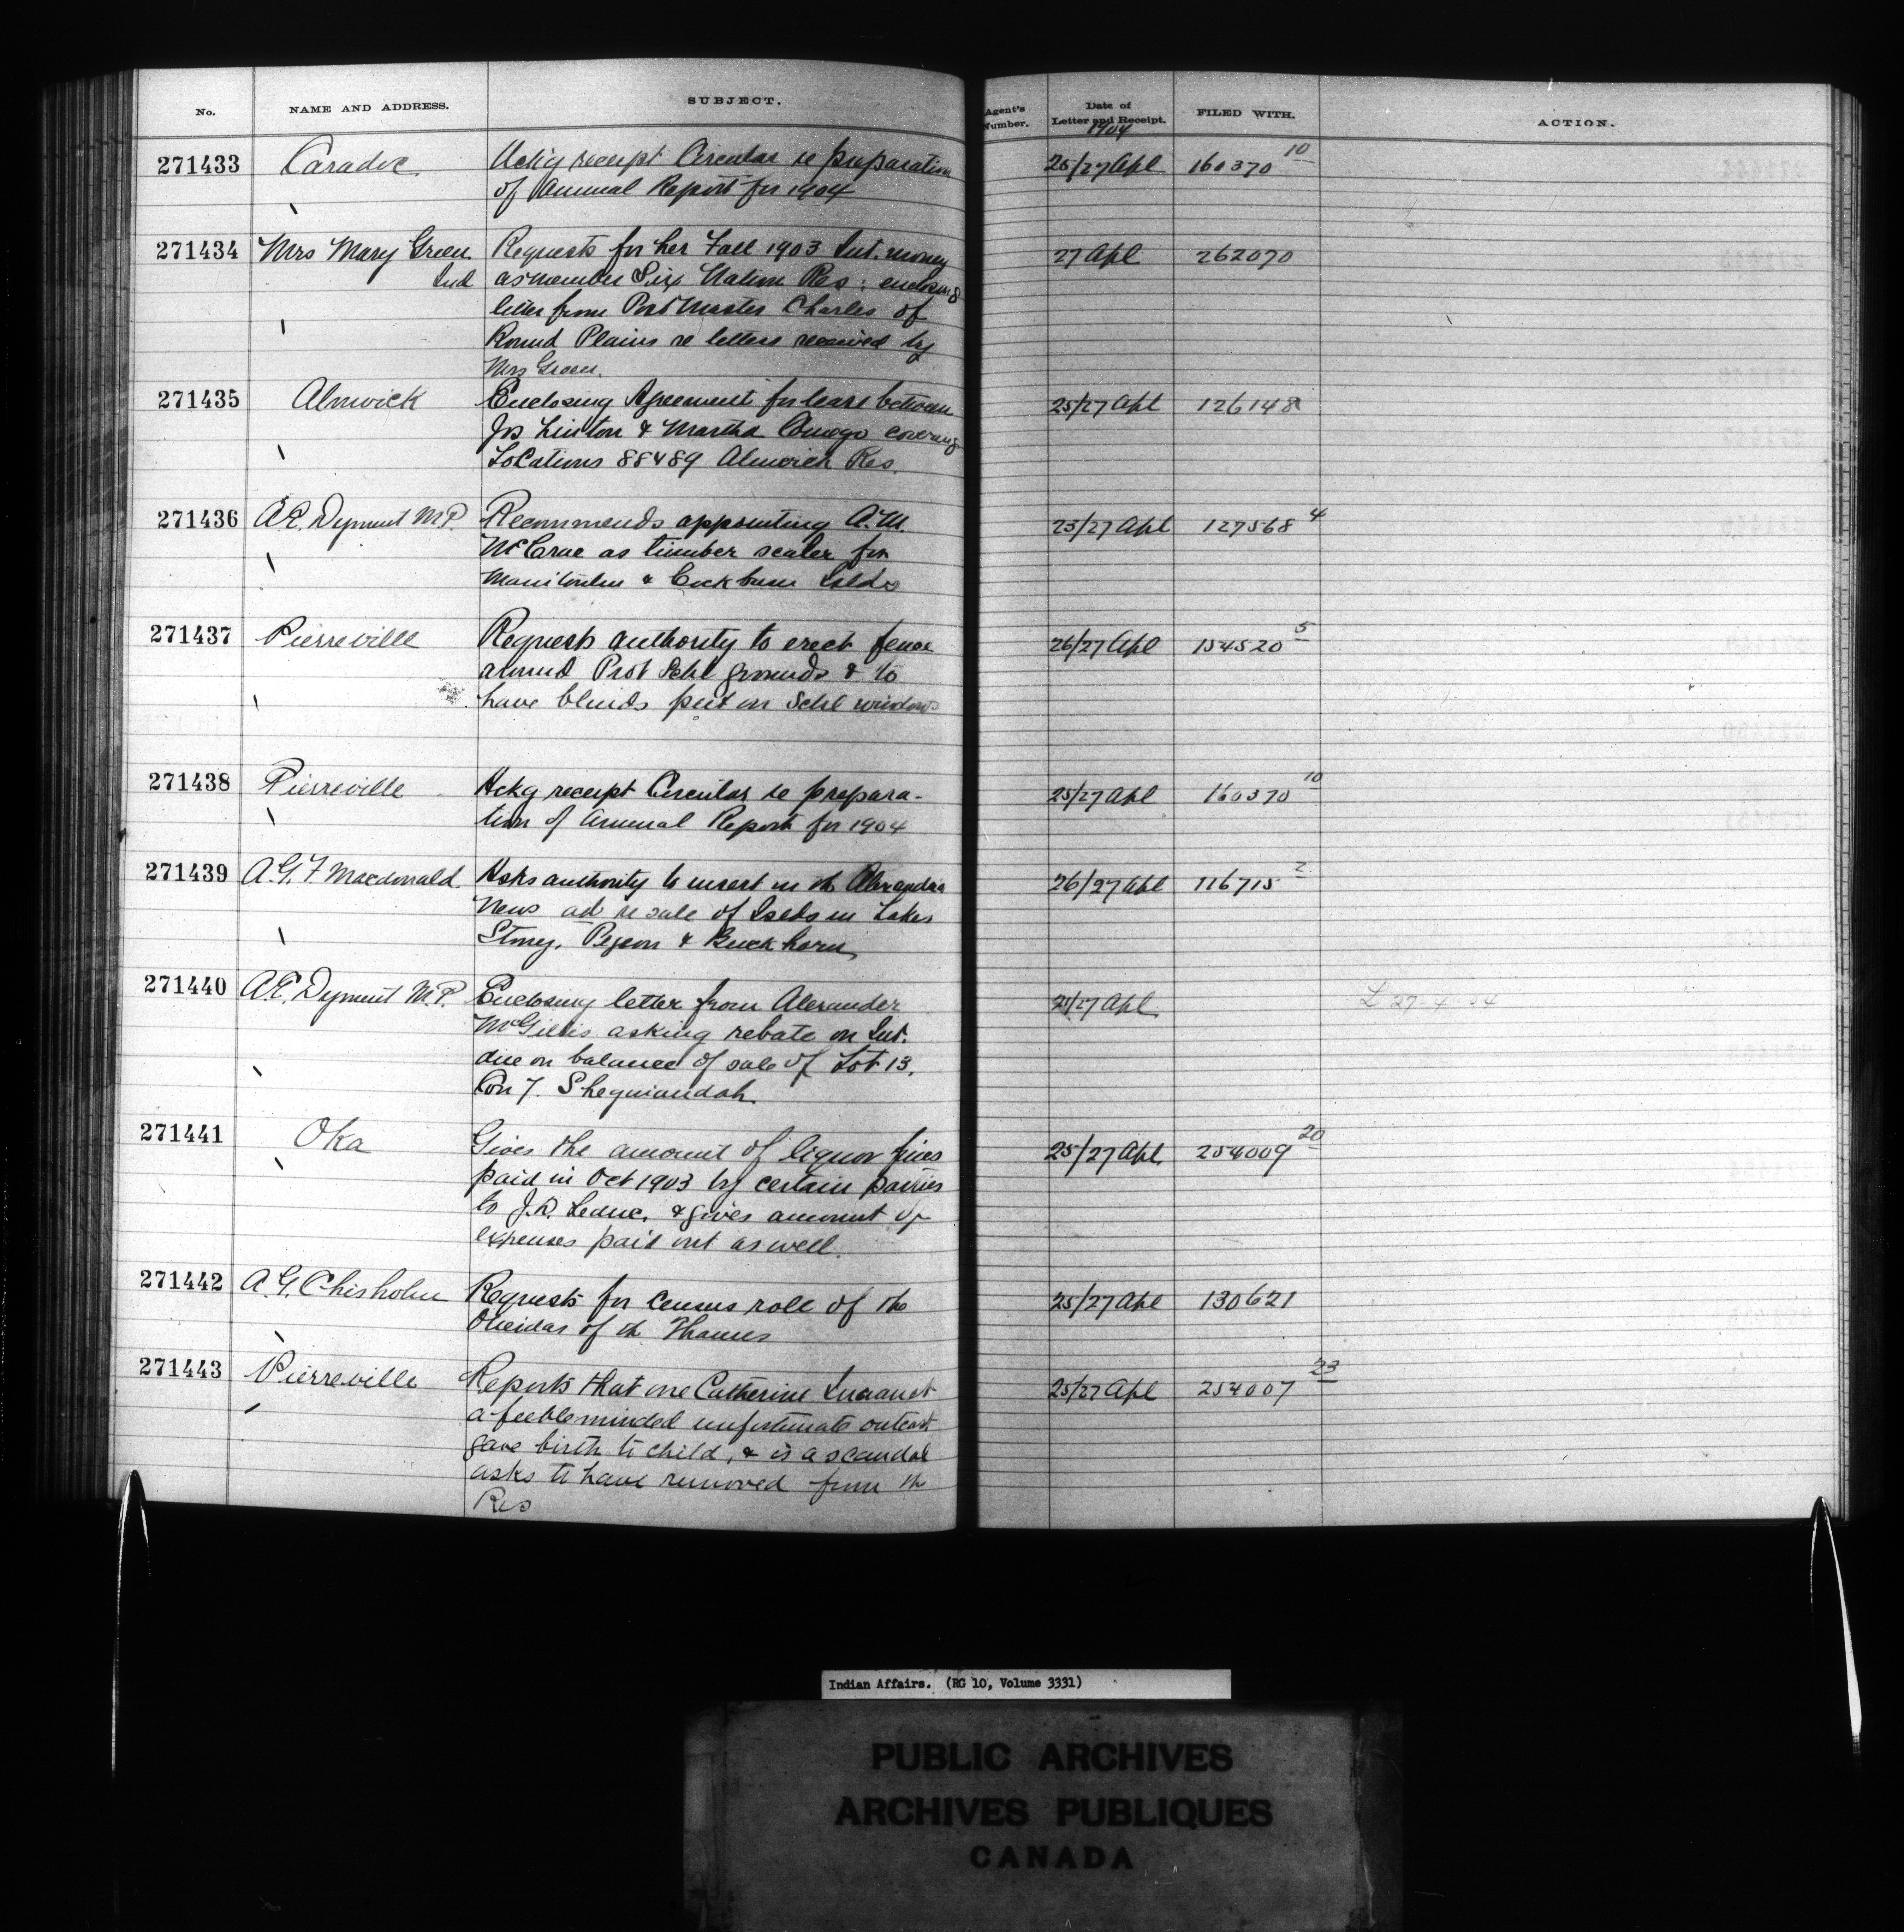 No. NAME AND ADDRESS. SUBJECT. Agent's Number. Date of Letter and Receipt. FILED WITH. ACTION.
1904
271433 Caradoc Ackg receipt Circular re preparation 25/27 Apl 160370 10
of Annual Report for 1904
271434 Mrs Mary Green Requests for her Fall 1903 Int. money 27 Apl 262070
Ind as member Six Nation Res: enclosing
letter from Post Master Charles of
Round Plains re letters received by
Mrs Green.
271435 Alnwick Enclosing Agreement for lease between 25/27 Apl 126148
Jos Linton & Martha Comego covering
Locations 88 & 89 Alnwick Res.
271436 A.E. Dyment M.P. Recommends appointing A.M. 25/27 Apl 127568 4
McCrae as timber scaler for
Manitoulin & Cockburn Islds
271437 Pierreville Requests authority to erect fence 26/27 Apl 154520 5
around Prot Schl grounds & to
have blinds put on Schl windows
271438 Pierreville Ackg receipt Circular re prepara- 25/27 Apl 160370 10
tion of Annual Report for 1904
271439 A.G.F. Macdonald. Asks authority to insert in th Alexandria 26/27 Apl 116715 2
News ad re sale of Islds in Lakes
Stoney, Pegeon & Buckhorn
271440 A.E. Dyment M.P. Enclosing letter from Alexander 21/27 Apl L 27-4-04
McGillis asking rebate on Int.
due on balance of sale of Lot 13,
Con 7. Sheguiandah.
271441 Oka Gives the amount of liquor fines 25/27 Apl. 254009 20
paid in Oct 1903 by certain parties
to J.R. Leduc, & gives amount of
expenses paid out as well.
271442 A.G. Chisholm Requests for census roll of the 25/27 Apl 130621
Oneidas of th Thames
271443 Pierreville Reports that one Catherine 25/27 Apl 254007 23
a feebleminded unfortunate outcast
gave birth to child, & is a scandal
asks to have removed from th
Res
Indian Affairs. (RG 10, Volume 3331)
PUBLIC ARCHIVES
ARCHIVES PUBLIQUES
CANADA